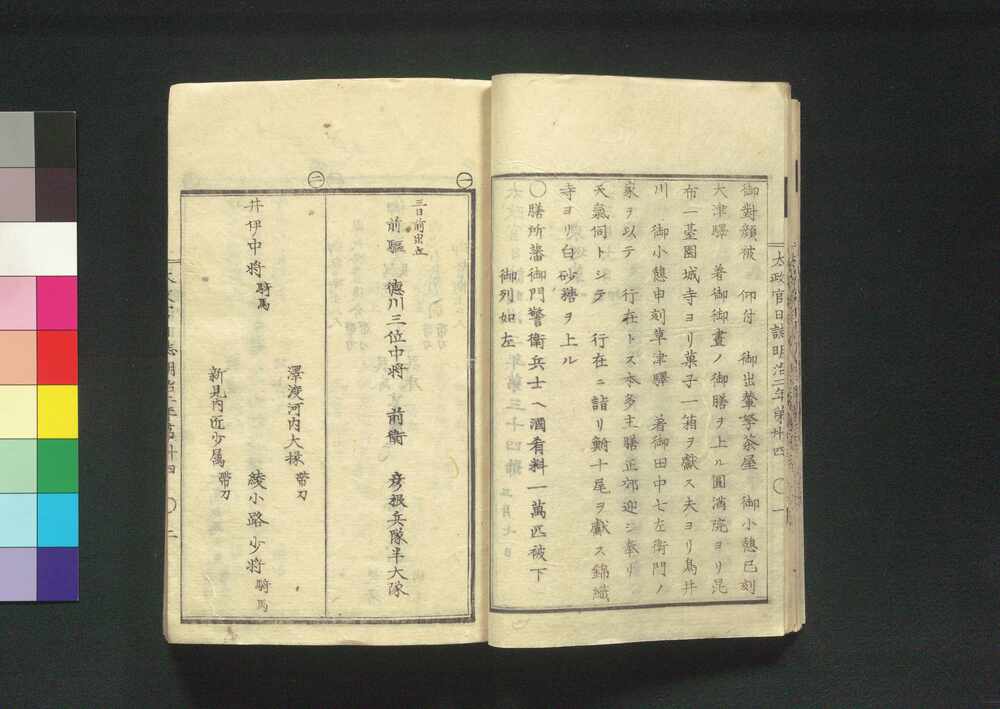 御對顔被　仰付　御出輦拏茶屋　御小憩巳刻
大津驛　着御御晝ノ御膳ヲ上ル圓滿院ヨリ昆
布一臺園城寺ヨリ菓子一箱ヲ獻ス夫ヨリ鳥井
川　御小憩申刻草津驛　着御田中七左衛門ノ
家ヲ以テ　行在トス本多主膳正郊迎シ奉リ
天氣伺トシテ　行在ニ詣リ鮒十尾ヲ獻ス錦織
寺ヨリ白砂糖ヲ上ル
〇膳所藩御門警衛兵士ヘ酒肴料一萬匹被下
御列如左
太政官日誌明治二年第廿四　〇　一
一
三日前出立
前驅　德川三位中將　前衛　彦根兵隊半大隊
二
澤渡河内大掾　帶刀
井伊中將　騎馬　綾小路少將　騎馬
新見内匠少属　帶刀
太政官日誌明治二年第廿四　〇　二